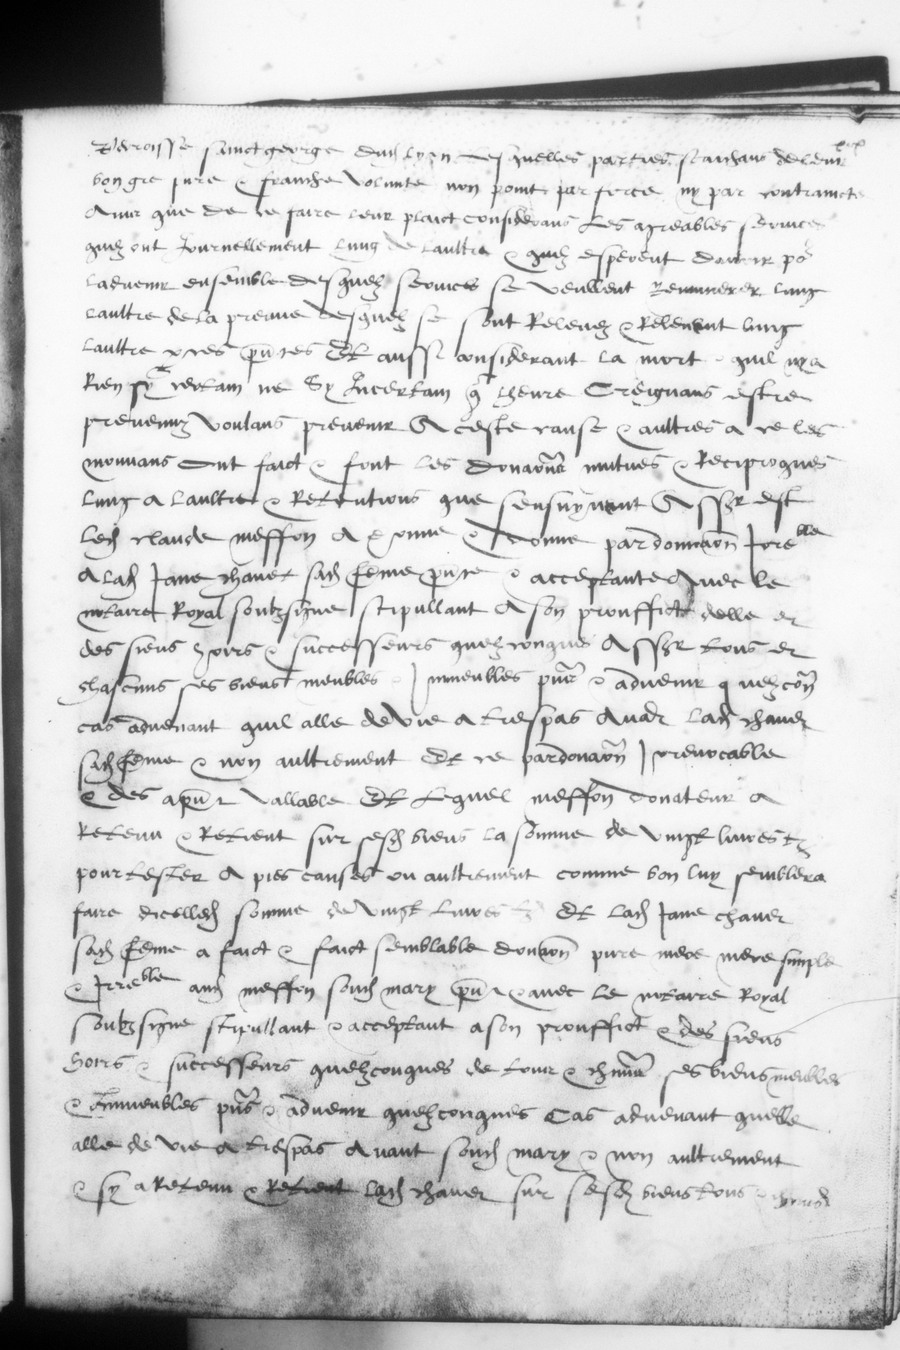 Parroisse sainct george dud lyon Lesquelles parties saichans de leur
bon gre pure & franche volunte non point par force ny par contraincte
Ains que de ce faire leur plaict considerans Les agreables services
quez ont Journellement lung de laultre & quez esperent davoir po
ladvenir ensemble desquez services se veullent Remunerer lung
laultre de la preuve desquez se sont Relevez & Relevent lung
laultre & ces pntes Et aussi considerant la mort quil nya
Rien sy certain ne sy Incertain q lheure Creignans estre
prevenuz voulans prevenir A ceste cause & aultres a ce les
mouvans Ont faict & font les donaons mutues & Reciproques
lung a laultre & Retentions que sensuyvent Assr est
led claude meffon A donne & donne par donnaon Irreble
A lad Jane chavet sad feme pnte & acceptante Avec le
notaire Royal soubzsigne stipullant A son prouffict delle et
des siens hoirs & successeurs quezconques Assr tous et
chascuns ses biens meubles & Immeubles pns & advenir quezcon
cas advenant quil alle de vie a trespas Avat lad chavet
sad feme & non aultrement Et ce par donaon Irrevocable
& des apnt vallable Et Lequel meffon donateur a
Retenu & Retient sur sesd biens la somme de vingt livres tz
pour tester A pies causes ou aultrement comme bon luy semblera
faire dicelled somme de vingt Livres tz Et lad Jane chavet
sad feme a faict & faict semblable donaon pure mere simple
& Irreble aud meffon soud mary pnt & avec le notaire Royal
soubzsigne stipullant & acceptant a son prouffict & des siens
hoirs & successeurs quezconques de tous & ses biens meubles
& Immeubles pns & advenir quezconques Cas advenant quelle
alle de vie a trespas Avant soud mary & non aultrement
& sy a Retenu & Retient lad chavet sur sesd biens tous